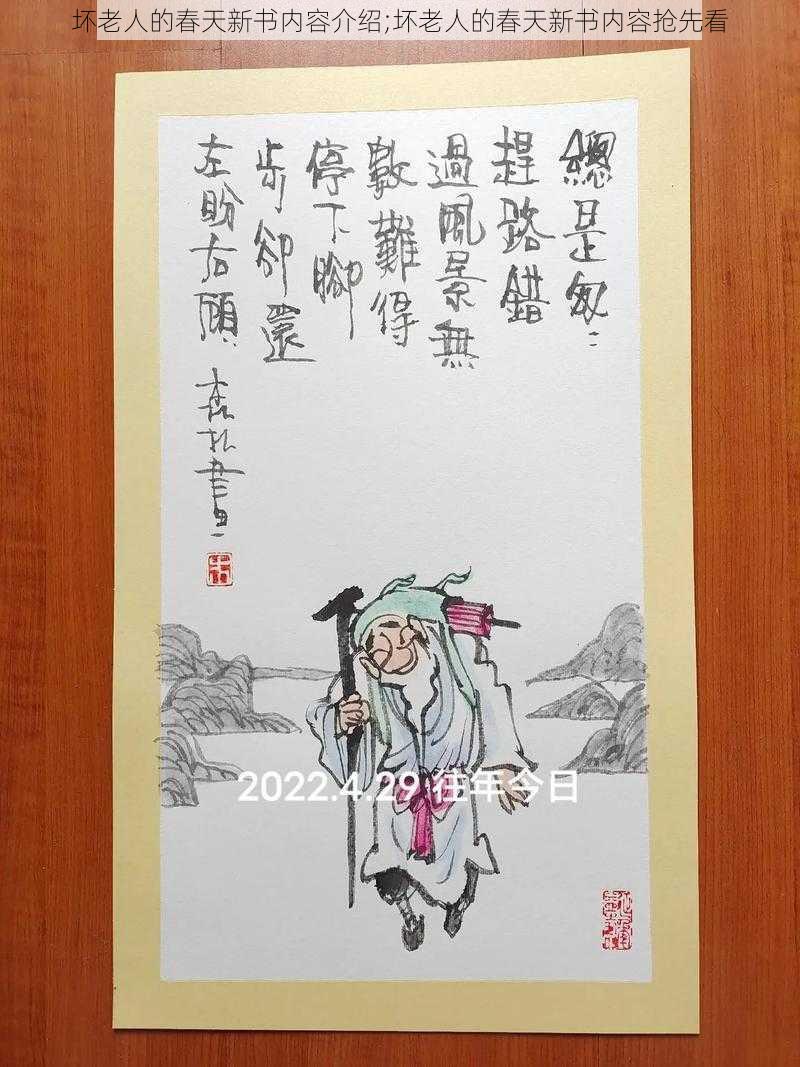 坏老人的春天新书内容介绍;坏老人的春天新书内容抢先看
總是匆:
趕路錯
過風景無
數難得
停下腳
步卻還
左盼右顧
書
2022.4.29 往年今日